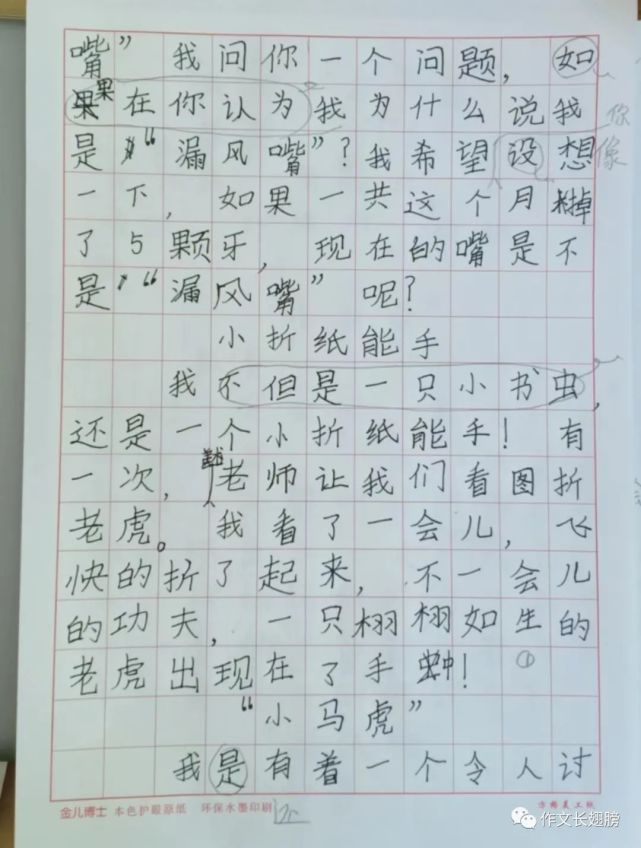 嘴”我问你一个问题，如
果在你认为我为什么说我
是“漏风嘴”？我希望设想
一下，如果一共这个月掉
了5颗牙，现在的嘴是不
是“漏风嘴”呢？
小折纸能手
我不但是一只小书虫，
还是一个小折纸能手！有
一次，老师让我们看图折
老虎。我看了一会儿，飞
快的折了起来，不一会儿
的功夫，一只栩栩如生的
老虎出现在了手中！①
“小马虎”
我是有着一个令人讨
你
像
金儿博士 本色护眼原纸 环保水墨印刷
方格美工纸
作文长翅膀